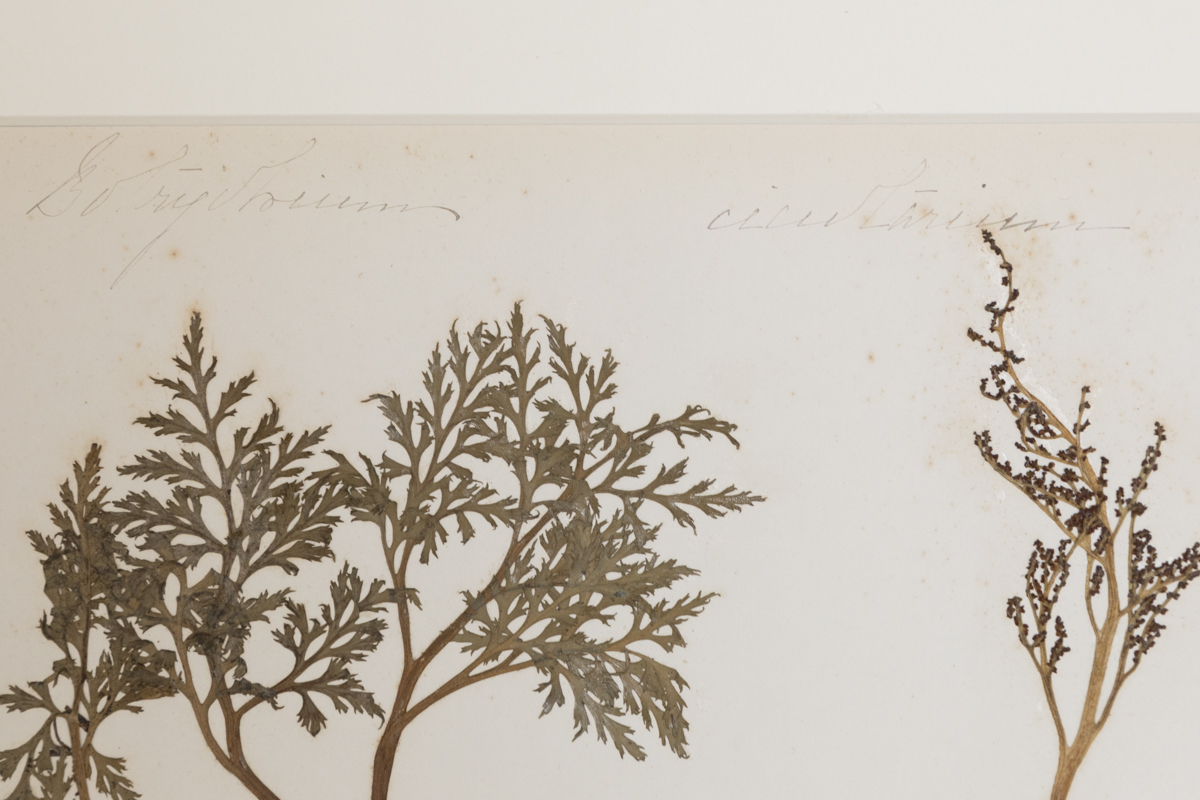 Botrychium cicutarium